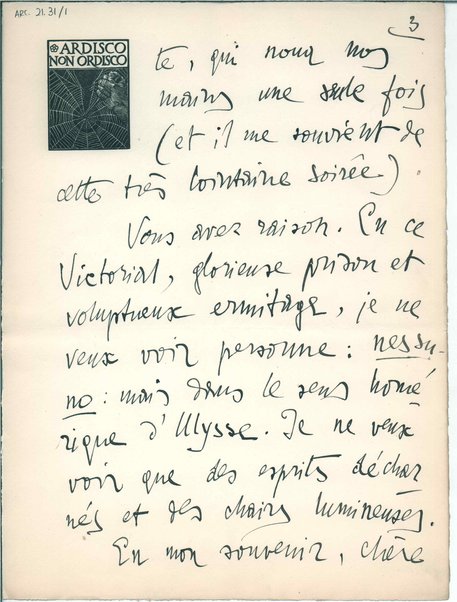 ARC. 21.31/1
3
ARDISCO
NON ORDISCO
te, qui noua nos
mains une seule fois
(et il me souvient de
cette très lointaine soirée).
Vous avez raison. En ce
Victorial, glorieuse prison et
voluptueux ermitage, je ne
veux voir personne: nessu-
no: mais dans le sens homé
rique d'Ulysse. Je ne veux
voir que des esprits déchar
nés et des chairs lumineuses.
En mon souvenir, chère